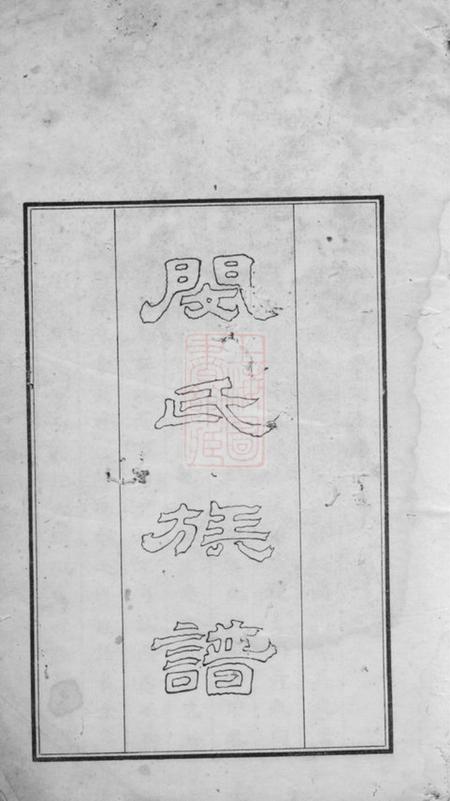 閔氏族譜